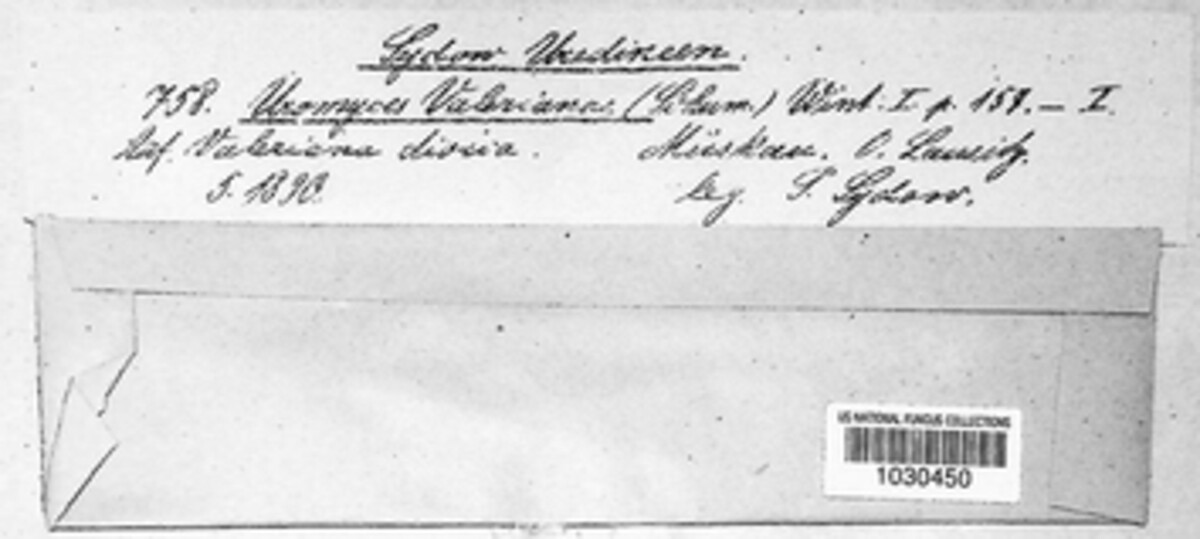 Sydow Uredineen.
758. Uromyces Valerianae. (Schum.) Wint. I p. 157. — I.
Auf Valeriana dioica. Muskau. O. Lausitz.
5. 1890. leg. P. Sydow.
US NATIONAL FUNGUS COLLECTIONS
1030450